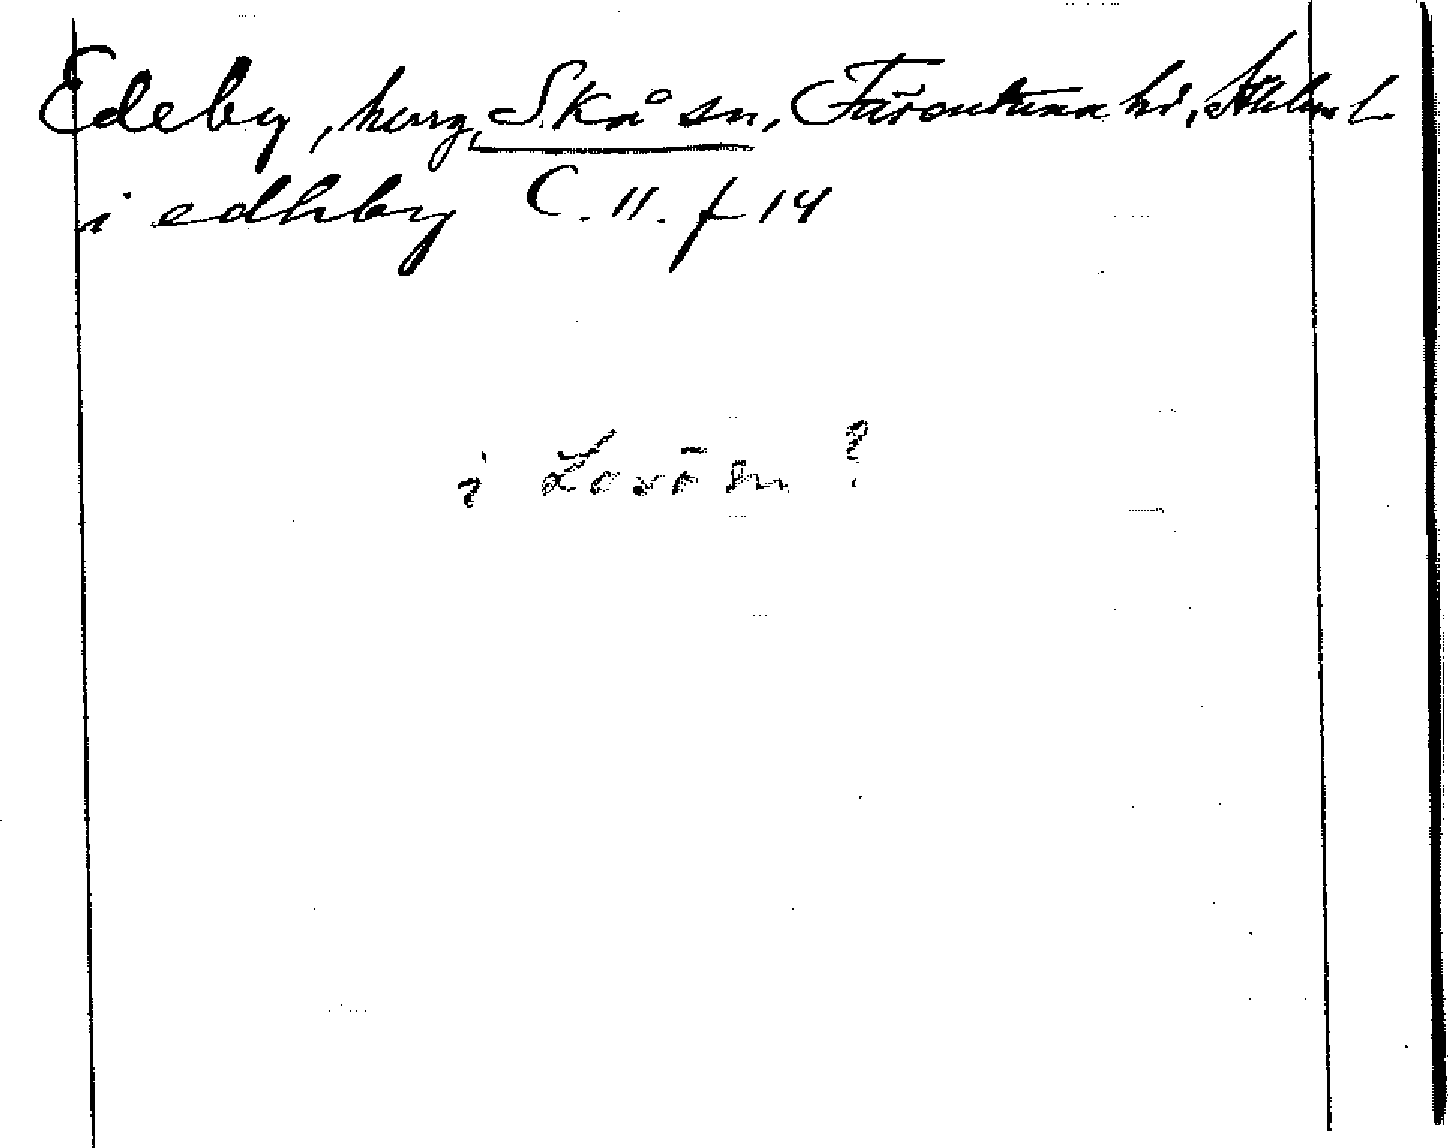 Edeby, herrg, Skå sn, Färentuna hd, Sthlms l.
i edhby C. 11. f 14
i Lovö sn ?